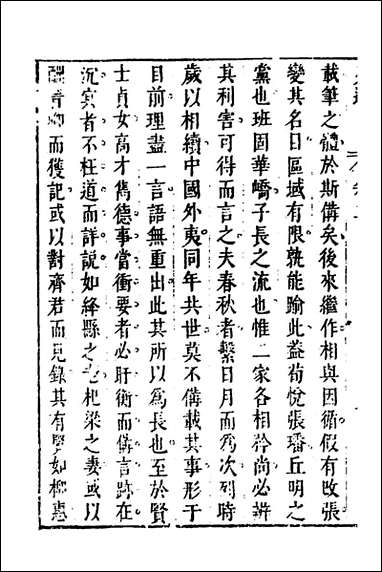 載筆之體於斯備矣後來繼作相與因循假有改張
變其名目區域有限孰能踰此蓋荀悅張璠丘明之
黨也班固華嶠子長之流也惟二家各相矜尚必辨
其利害可得而言之夫春秋者繫日月而爲次列時
歲以相續中國外夷同年共世莫不備載其事形于
目前理盡一言語無重出此其所以爲長也至於賢
士貞女高才雋德事當衝要者必盱衡而備言跡在
沉冥者不枉道而詳說如絳縣之老杞梁之妻或以
酬晉卿而獲記或以對齊君而見錄其有賢如柳惠